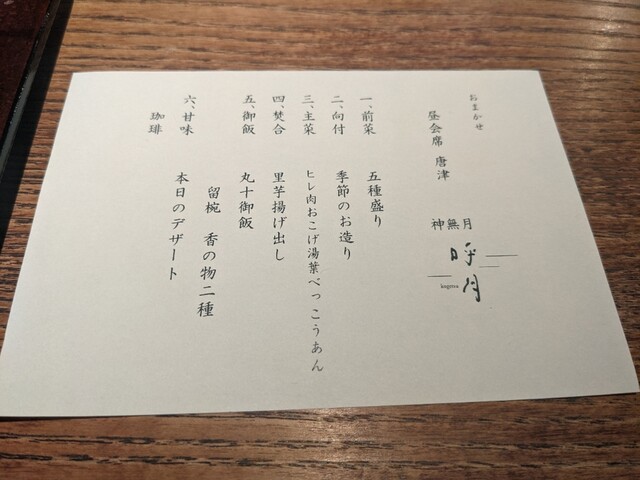 おまかせ
昼会席 唐津
神無月
呼月
kogetsu
一、前菜 五種盛り
二、向付 季節のお造り
三、主菜 ヒレ肉おこげ湯葉べっこうあん
四、焚合 里芋揚げ出し
五、御飯 丸十御飯
留椀 香の物二種
六、甘味 本日のデザート
珈琲